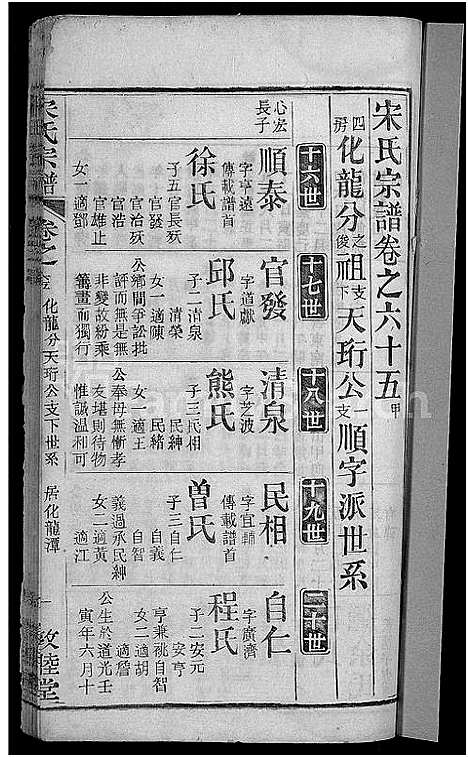 宋氏宗譜卷之六十五甲
四房化龍分之俊祖支下天珩公一支順字派世系
十六世
十七世
十八世
十九世
二十世
心宏長子
順泰
字亨遠
傳載譜首
徐氏
子五官長殀
官發
官治殀
官浩
官雄止
女一適鄧
官發
字道獻
邱氏
子二清泉
清榮
女一適陳
公鄉間爭訟批
評而無是無
非變故紛乘
籌畫而獨行
清泉
字芝波
熊氏
子三民相
民紳
民緒
女一適王
公奉母無慚孝
友堪則待物
惟誠溫和可
民相
字宜輔
傳載譜首
曾氏
子三自仁
自義
自智
義過承民紳
女二適黃
適江
自仁
字廣濟
程氏
子二安元
安亨
亨兼祧自智
女二適胡
適詹
公生於道光壬
寅年六月十
宋氏宗譜
卷之
化龍分天珩公支下世系
居化龍潭
一
敦睦堂